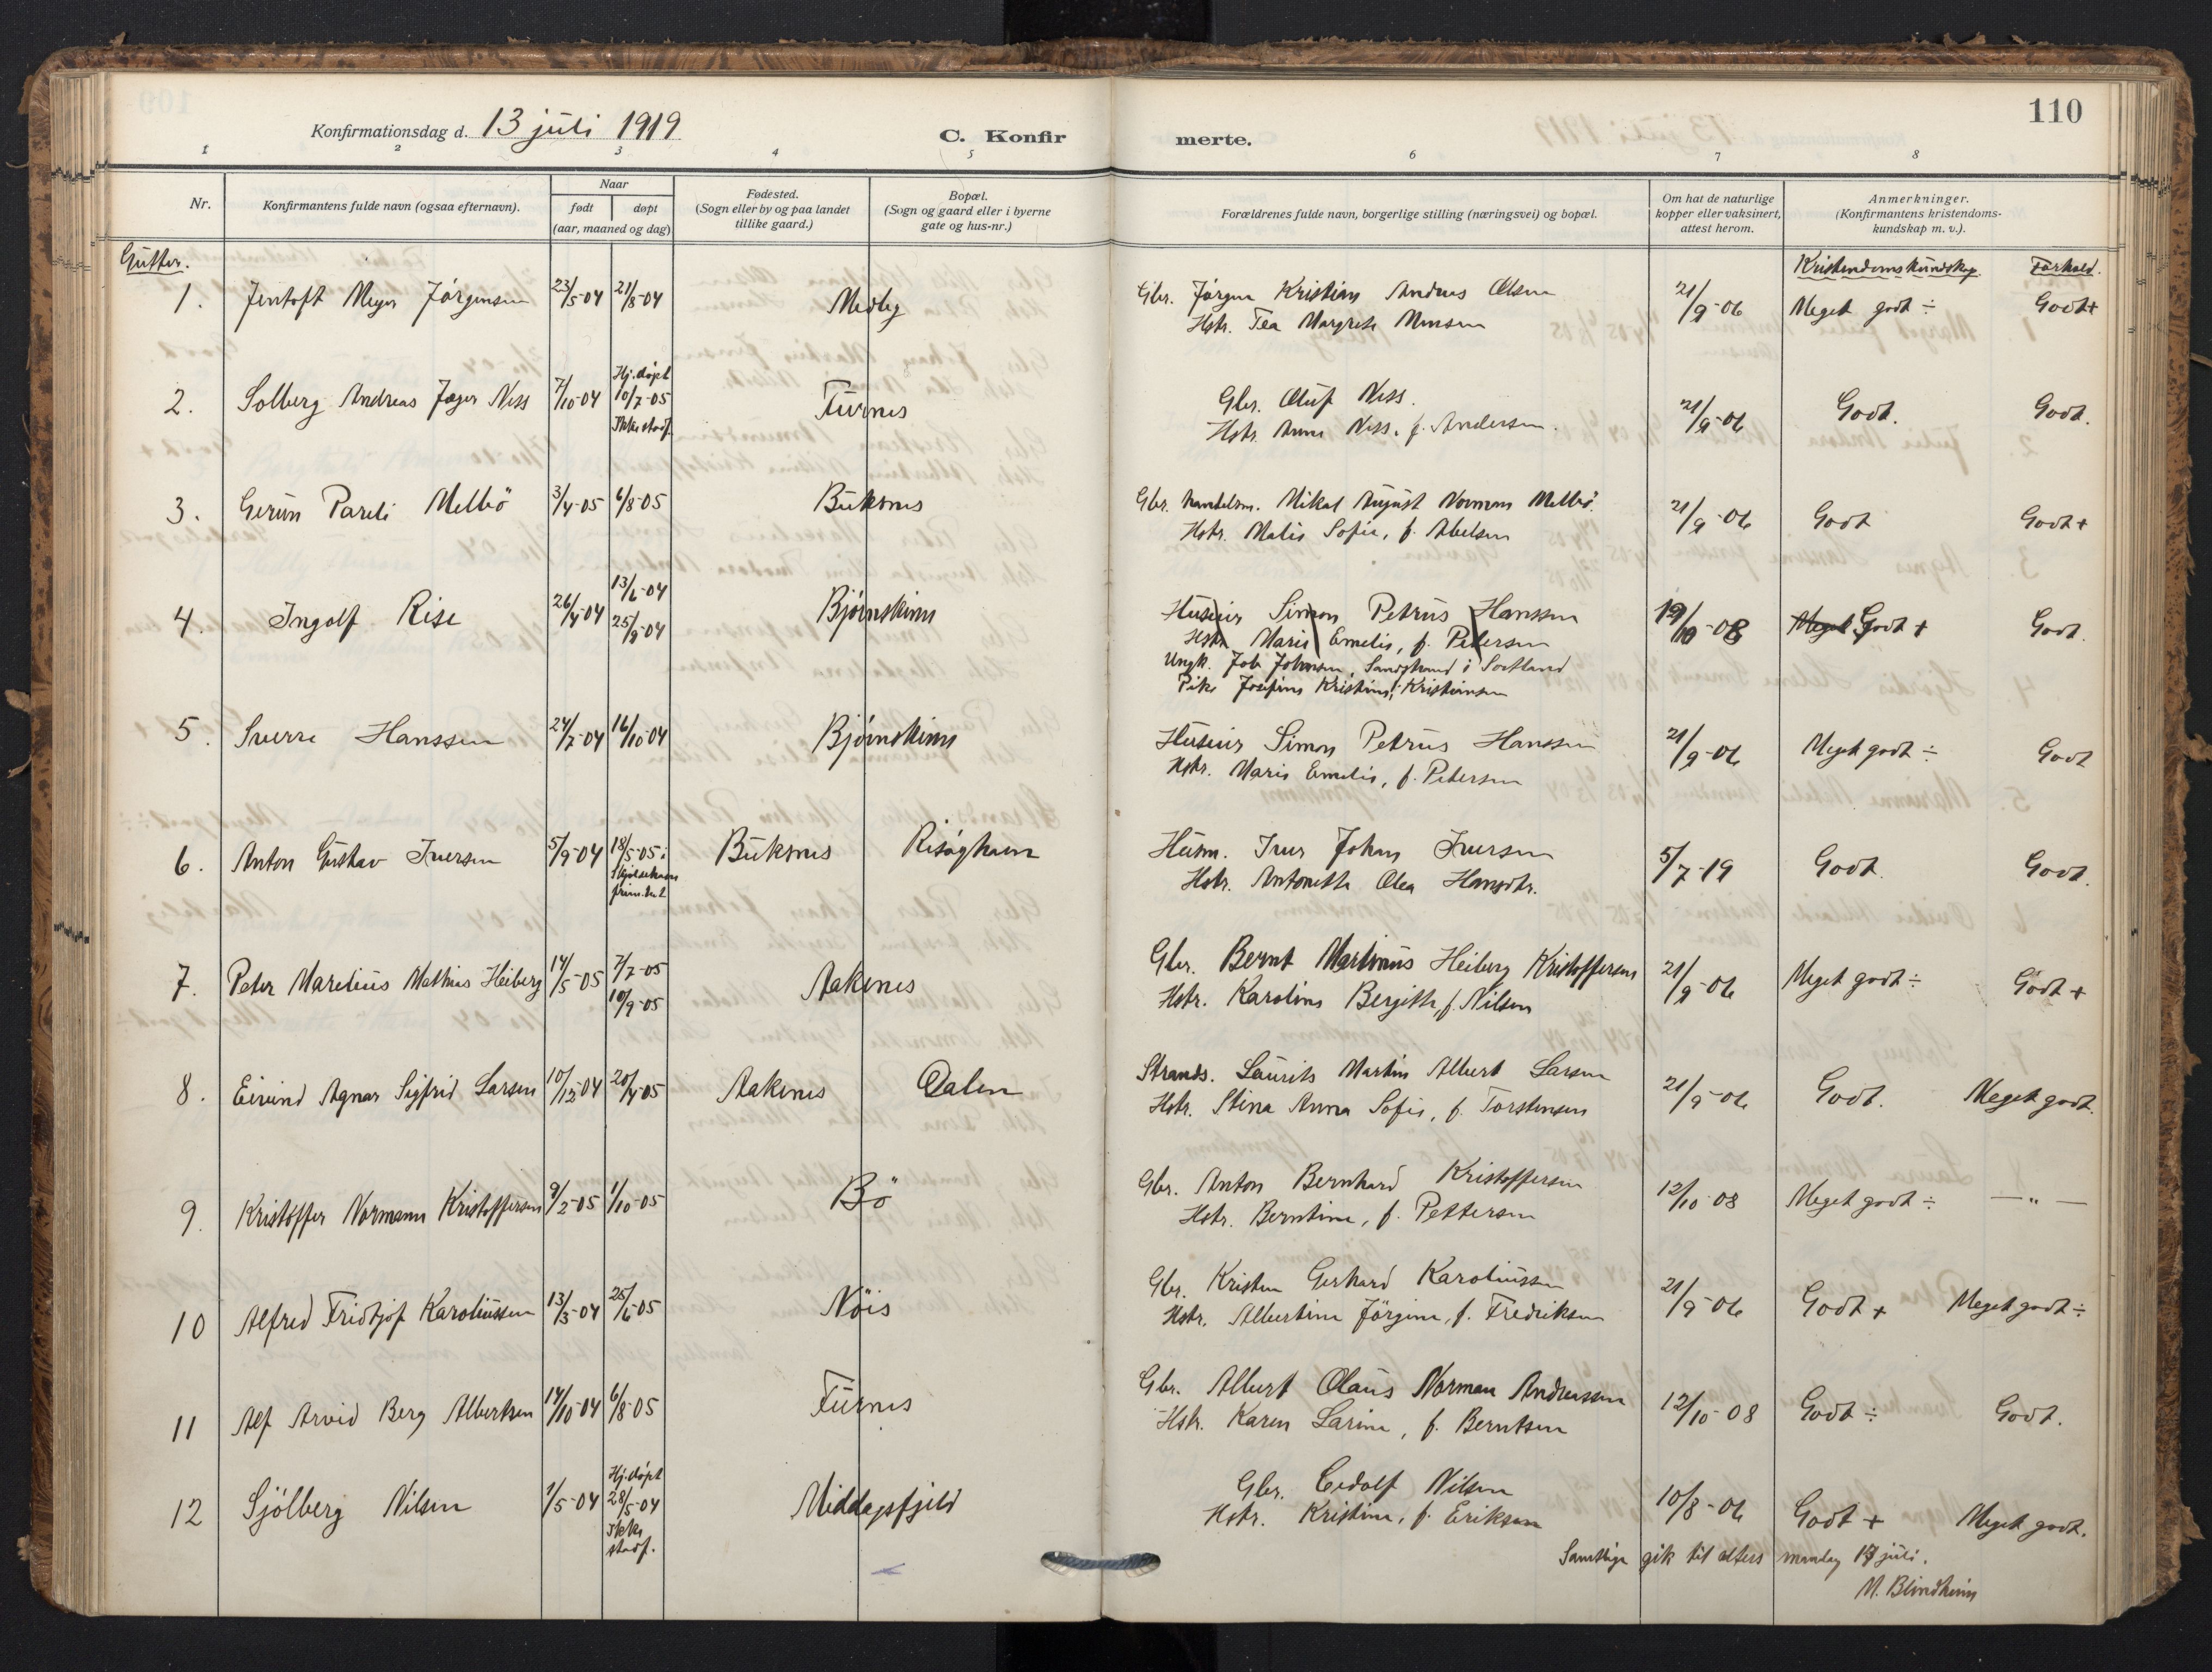 Konfirmationsdag d. 13 juli 1919
C. Konfirmerte.
110
1 2 3 4 5 6 7 8
Nr.
Konfirmantens fulde navn (ogsaa efternavn).
Naar
født døpt
(aar, maaned og dag)
Fødested.
(Sogn eller by og paa landet
tillike gaard.)
Bopæl.
(Sogn og gaard eller i byerne
gate og hus-nr.)
Forældrenes fulde navn, borgerlige stilling (næringsvei) og bopæl.
Om hat de naturlige
kopper eller vaksinert,
attest herom.
Anmerkninger.
(Konfirmantens kristendoms-
kundskap m. v.).
Gutter.
Kristendomskundskap Forhold.
1. Jentoft Meyer Jörgensen 23/5-04 21/8-04 Medby Gbr. Jörgen Kristian Andreas Olsen 21/9-06 Meget godt ÷ Godt+
Hstr. Tea Margrete Monsen
2. Solberg Andreas Jæger Ness 7/10-04 Hj.døpt 10/7-05 Ikke stadf. Furnes Gbr. Oluf Ness. 21/9-06 Godt. Godt.
Hstr. Anna Ness, f. Andersen.
3. Gerun Pareli Melbö 3/4-05 6/8-05 Buksnes Gbr. handelsm. Mikal August Normann Melbö. 21/9-06 Godt Godt+
Hstr. Malie Sofie, f. Abelsen
4. Ingolf Rise 26/4-04 13/6-04 25/9-04 Bjørnskinn Huseier Simon Petrus Hanssen 12/10-08 Meget Godt + Godt.
Hstr. Marie Emelie, f. Petersen
Ungk. Job Johnsen, Sandstrand i Sortland
Pike Josefine Kristine Kristiansen
5. Sverre Hanssen 24/7-04 16/10-04 Bjørnskinn Huseier Simon Petrus Hanssen 21/9-06 Meget godt ÷ Godt
Hstr. Marie Emelie, f. Petersen
6. Anton Gustav Iversen 5/9-04 18/5-05 i Buksnes Risøyhavn Husm. Iver Johan Iversen 5/7-19 Godt. Godt.
Hstr. Antonette Olea Hansdtr.
7. Peter Marelius Mathias Heiberg 14/5-05 7/7-05 10/9-05 Aakenes Gbr. Bernt Martinus Heiberg Kristoffersen 21/9-06 Meget godt ÷ Godt +
Hstr. Karoline Bergitte, f. Nilsen
8. Eivind Agnar Sigfrid Larsen 10/12-04 20/4-05 Aakenes Dalen Strands. Laurits Martin Albert Larsen 21/9-06 Godt. Meget godt.
Hstr. Stina Anna Sofie, f. Torstensen
9. Kristoffer Normann Kristoffersen 9/2-05 1/10-05 Bö Gbr. Anton Bernhard Kristoffersen 12/10-08 Meget godt ÷ — " —
Hstr. Berntine, f. Pettersen
10 Alfred Fridtjof Karoliussen 13/3-04 25/6-05 Nöis Gbr. Kristen Gerhard Karoliussen 21/9-06 Godt + Meget godt ÷
Hstr. Albertine Jörgine, f. Fredriksen
11 Alf Arvid Berg Albertsen 14/10-04 6/8-05 Furnes Gbr. Albert Olaus Norman Andreassen 12/10-08 Godt ÷ Godt.
Hstr. Karen Larine, f. Berntsen
12 Sjölberg Nilsen 1/5-04 Hj.døpt 28/5-04 Ikke stadf. Middagsfjeld Gbr. Edolf Nilsen 10/8-06 Godt + Meget godt.
Hstr. Kristine, f. Eriksen
Samtlige gik til alters mandag juli.
M. Blindheim